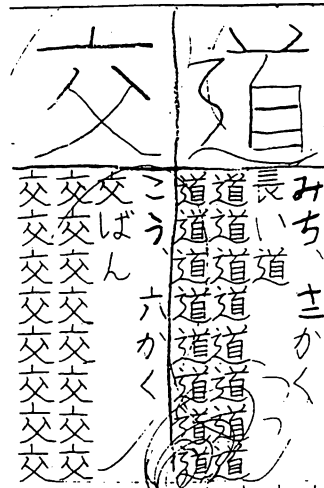 道
みち、十二かく
長い道
道道道道道道道道
道道道道道道道道
交
こう、六かく
交ばん
交交交交交交交交
交交交交交交交交